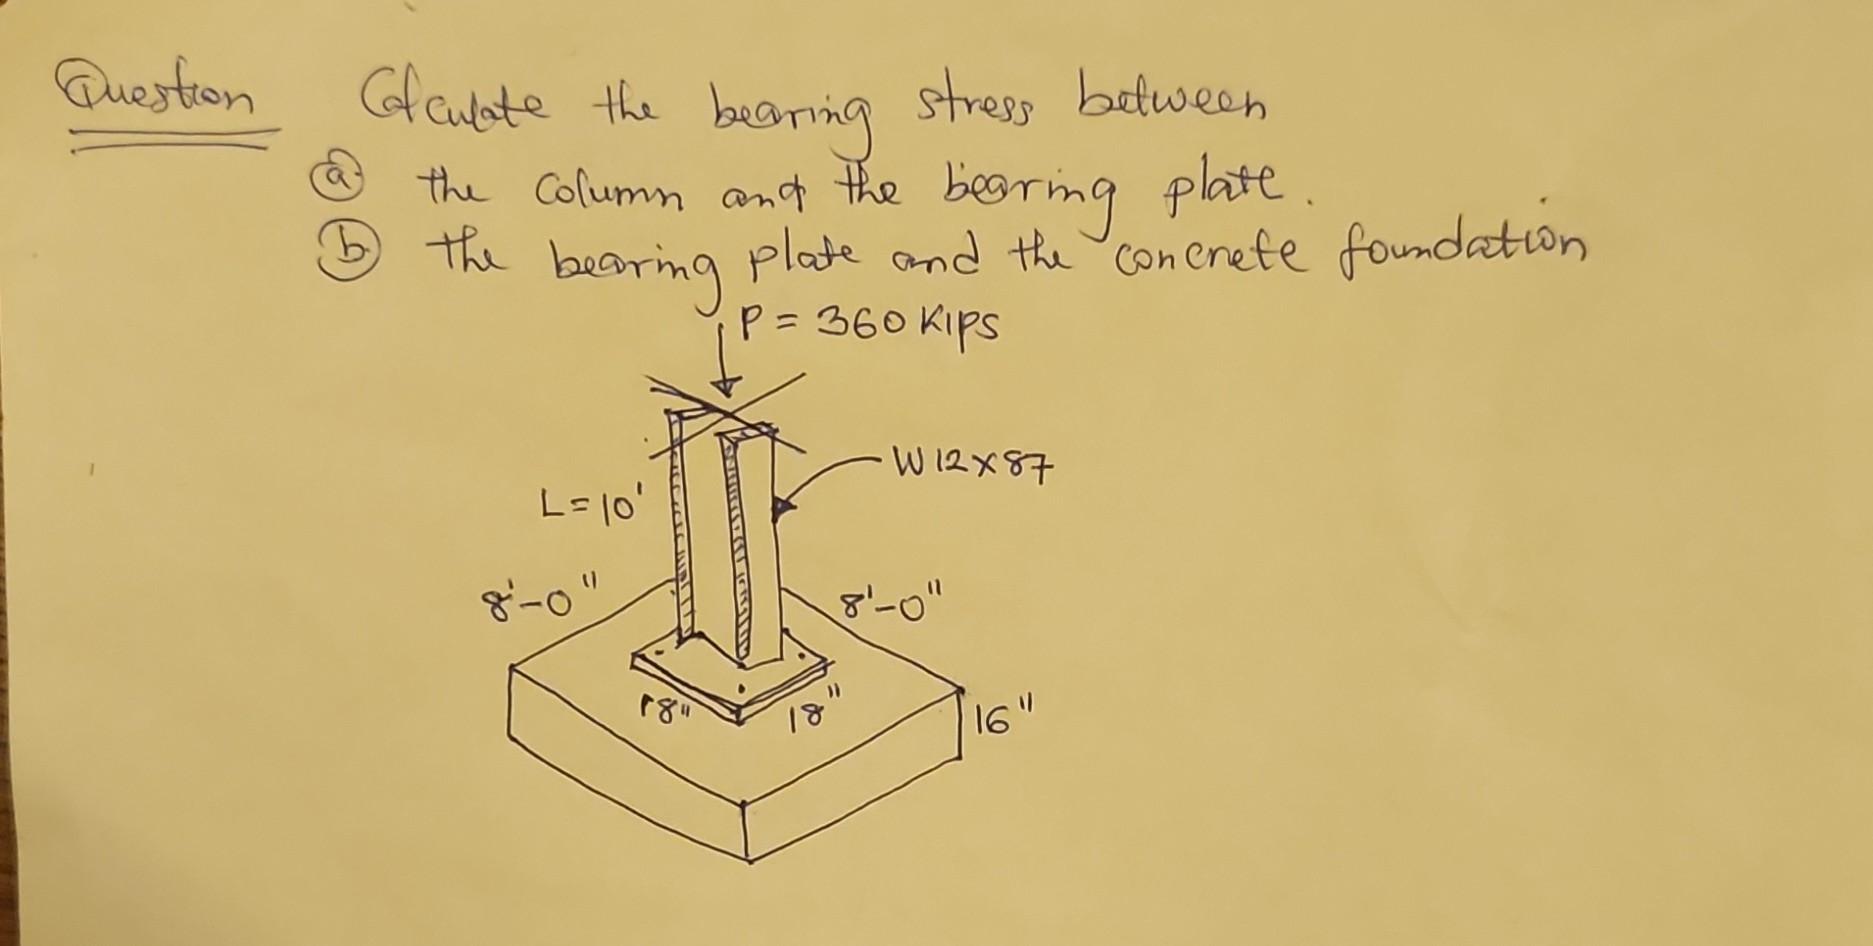 Question Calculate the bearing stress between
(a) the column and the bearing plate.
(b) the bearing plate and the concrete foundation
P = 360 KIPS
W12x87
L=10'
8'-0" 8'-0"
18" 18" 16"